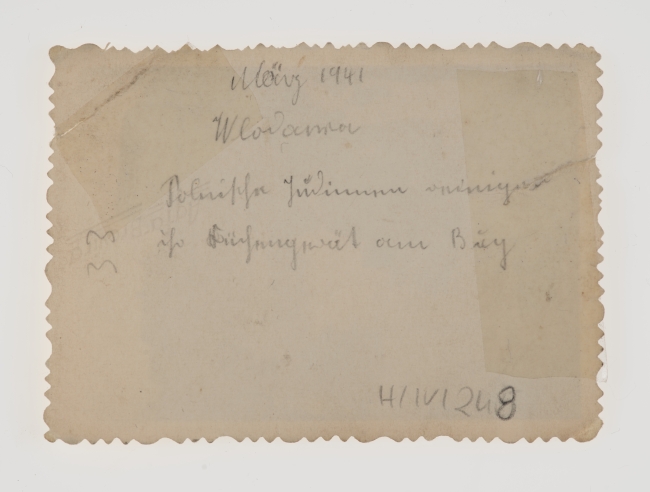 März 1941
Wlodawa
Polnische Jüdinnen reinigen
ihr Küchengerät am Bug
33
H/IV/248